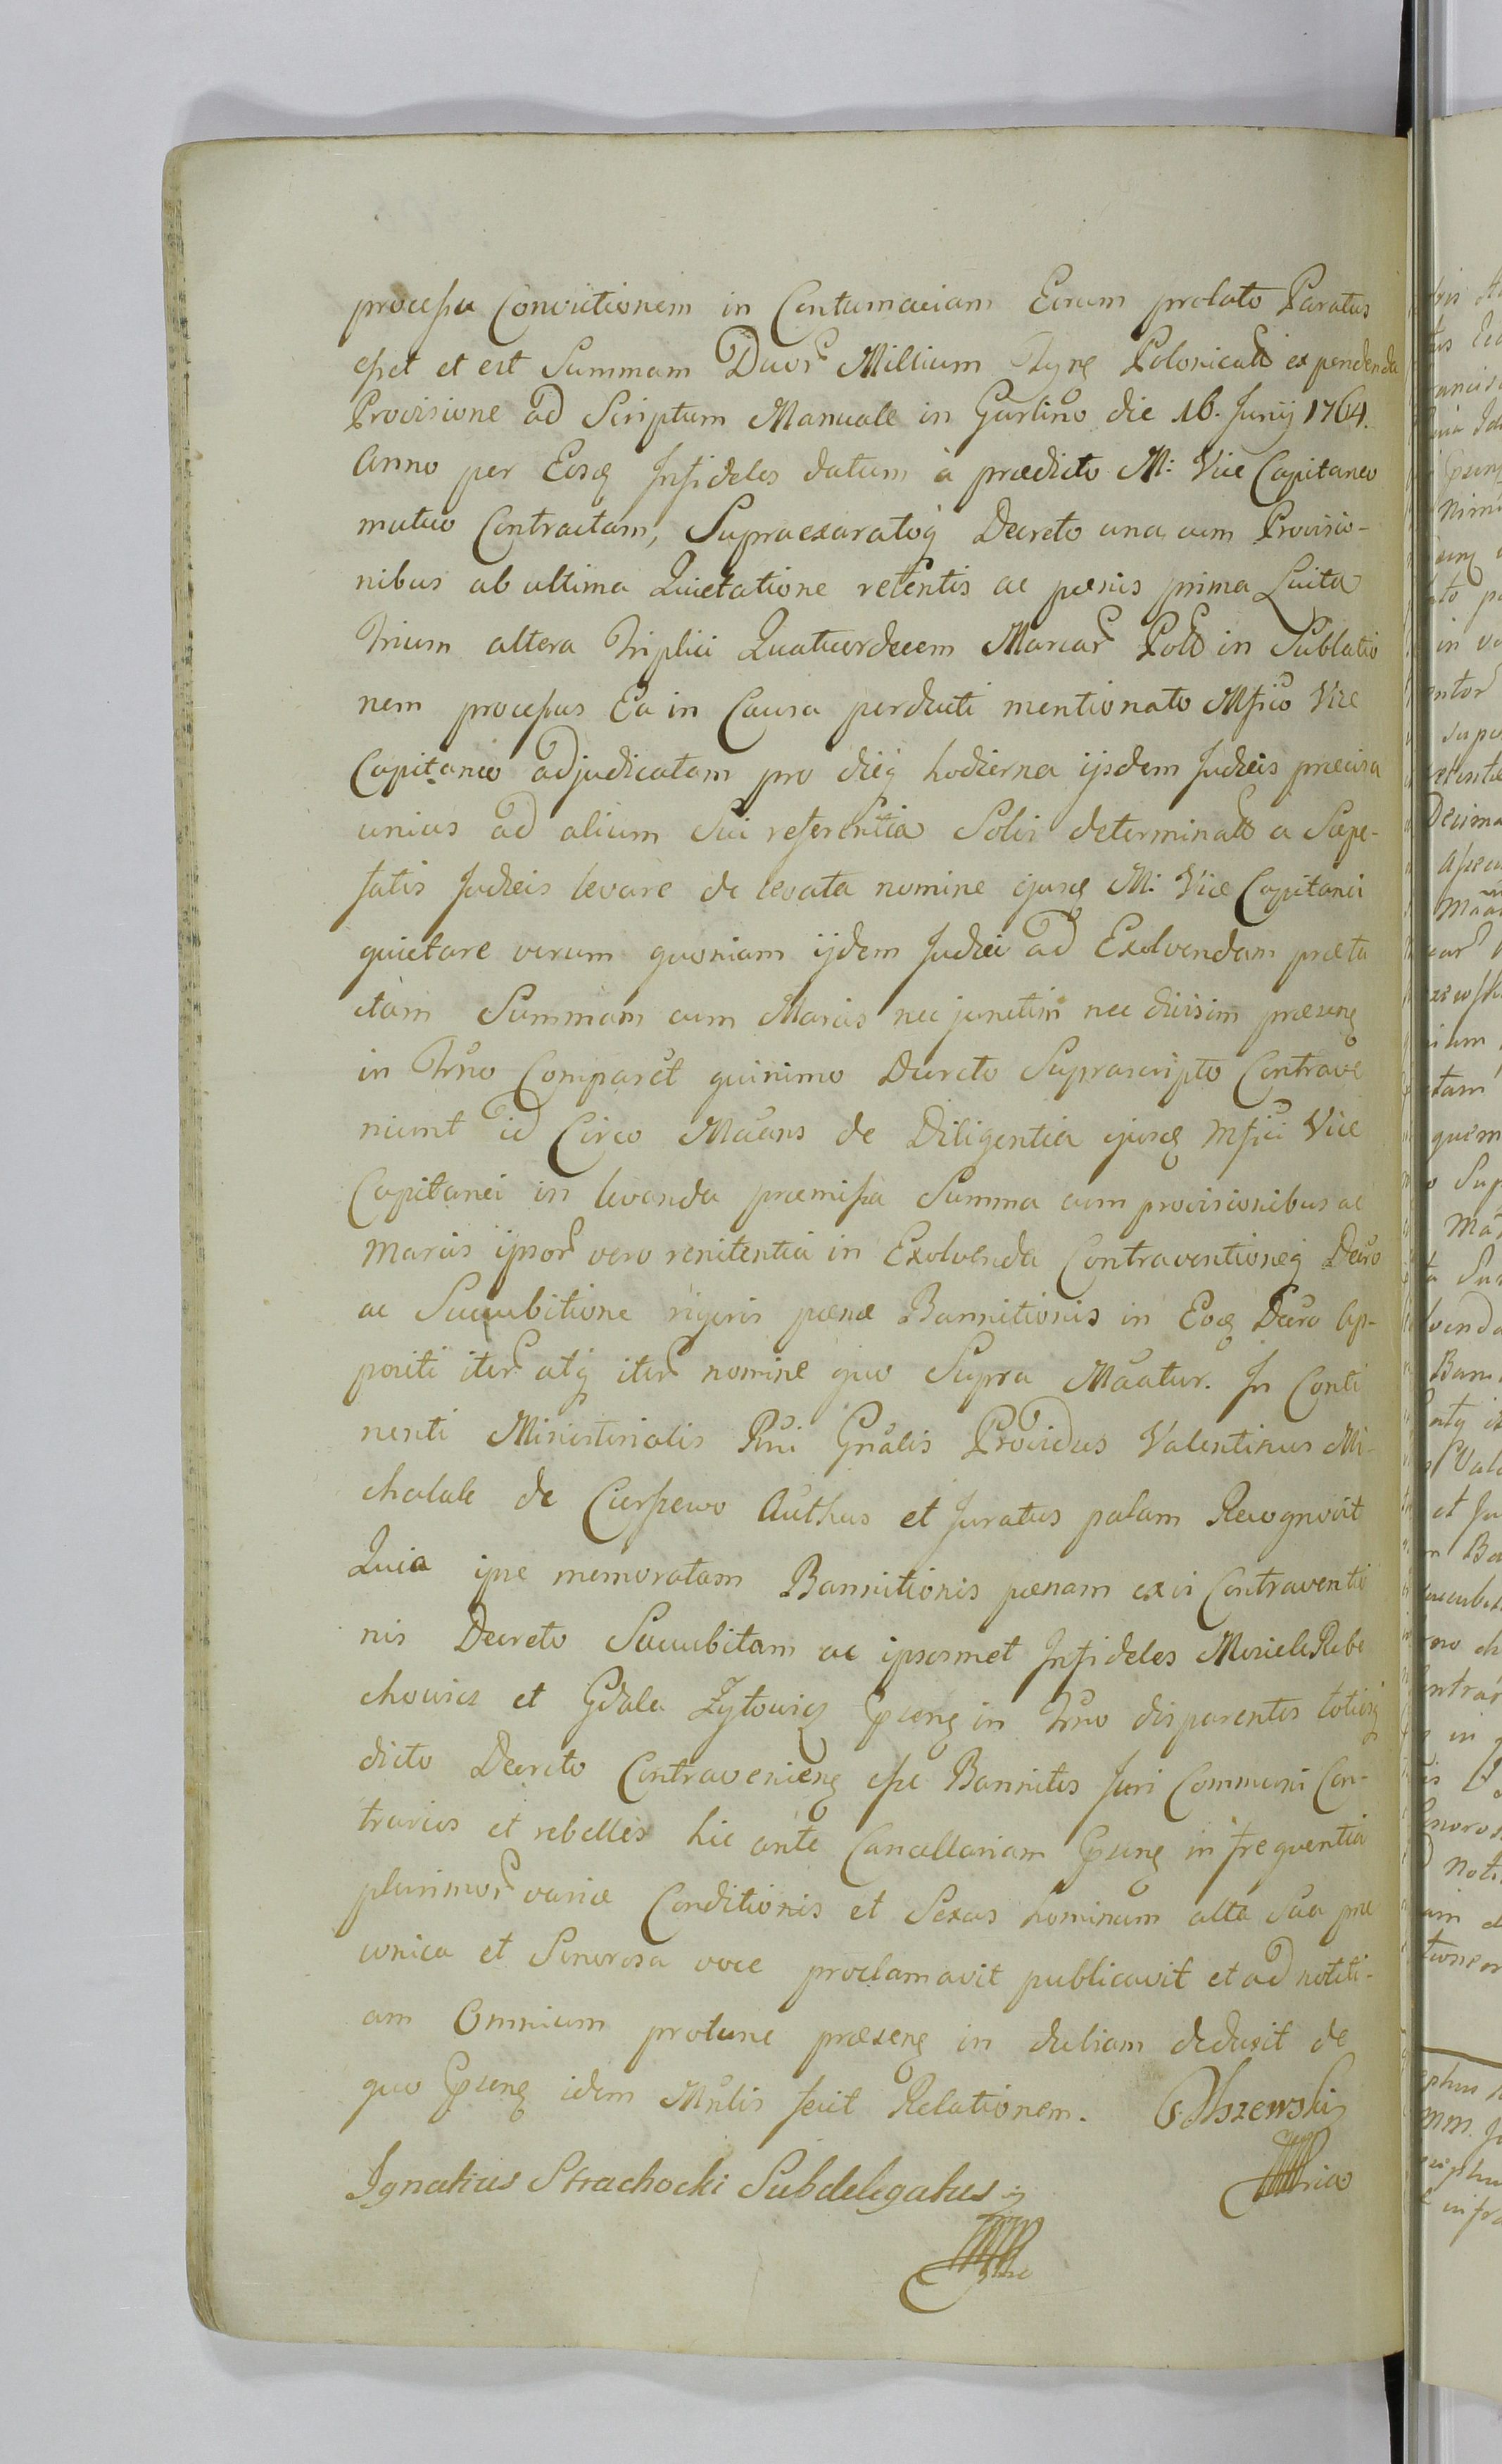 processu Convictionem in Contumaciam Eorum prolato Paratus
esset et est Summam Duor Millium Tynf Polonicali expendenda
Provisione ad Scriptum Manuale in Gurlino die 16. Junij 1764.
Anno per Eosq Infideles datum à praedicto M: Vice Capitaneo
mutuo Contractam, Supraexaratoq Decreto una cum Provisio-
nibus ab ultima Quietatione retentis ac paenis prima Luita
Trium altera Triplici Quatuordecem Marcar Pol in Sublatio
nem processus Ea in Causa perducti mentionato Mfico Vice
Capitaneo adjudicatam pro dieq hodierna ijsdem Judaeis praecisa
unius ad alium Sui referentia Solvi determinat a Saepe-
fatis Judaeis levare de levata nomine ejusq M: Vice Capitanei
quietare verum quoniam ijdem Judaei ad Exolvendam praeta
ctam Summam cum Marcis nec junctim nec divisim praesenq
in Trno Comparet quinimo Decreto Suprascripto Contrave
niunt id Circo Maans de Diligentia ejusq Mfici Vice
Capitanei in levanda praemissa Summa cum provisionibus ac
Marcis ipsor vero renitentia in Exolvenda Contraventioneq Decro
ac Succubitione rigoris paenae Bannitionis in Eosq Decro Ap-
positi iter atq iter nomine quo Supra Maatur. In Conti
nenti Ministerialis Rni Gnalis Providus Valentinus Mi-
chalak de Cierpewo Authus et Juratus palam Recognovit
Quia ipse memoratam Bannitionis paenam ex vi Contraventio
nis Decreto Succubitam ac ipsosmet Infideles Rube
chowicz et Gdala Zytowicz in Trno disparentes totiesq
dicto Decreto Contravenienq esse Bannitos Juri Communi Con-
trarios et rebelles hic ante Cancellariam in frequentia
plurimor variae Conditionis et Sexus hominum alta Sua prae
conica et Sonorosa voce proclamavit publicavit et ad notiti-
am Omnium protunc praesenq in dubiam deduxit de
quo idem Mnlis fecit Relationem. Olszewski
Ignatius Strachocki Subdelegatus